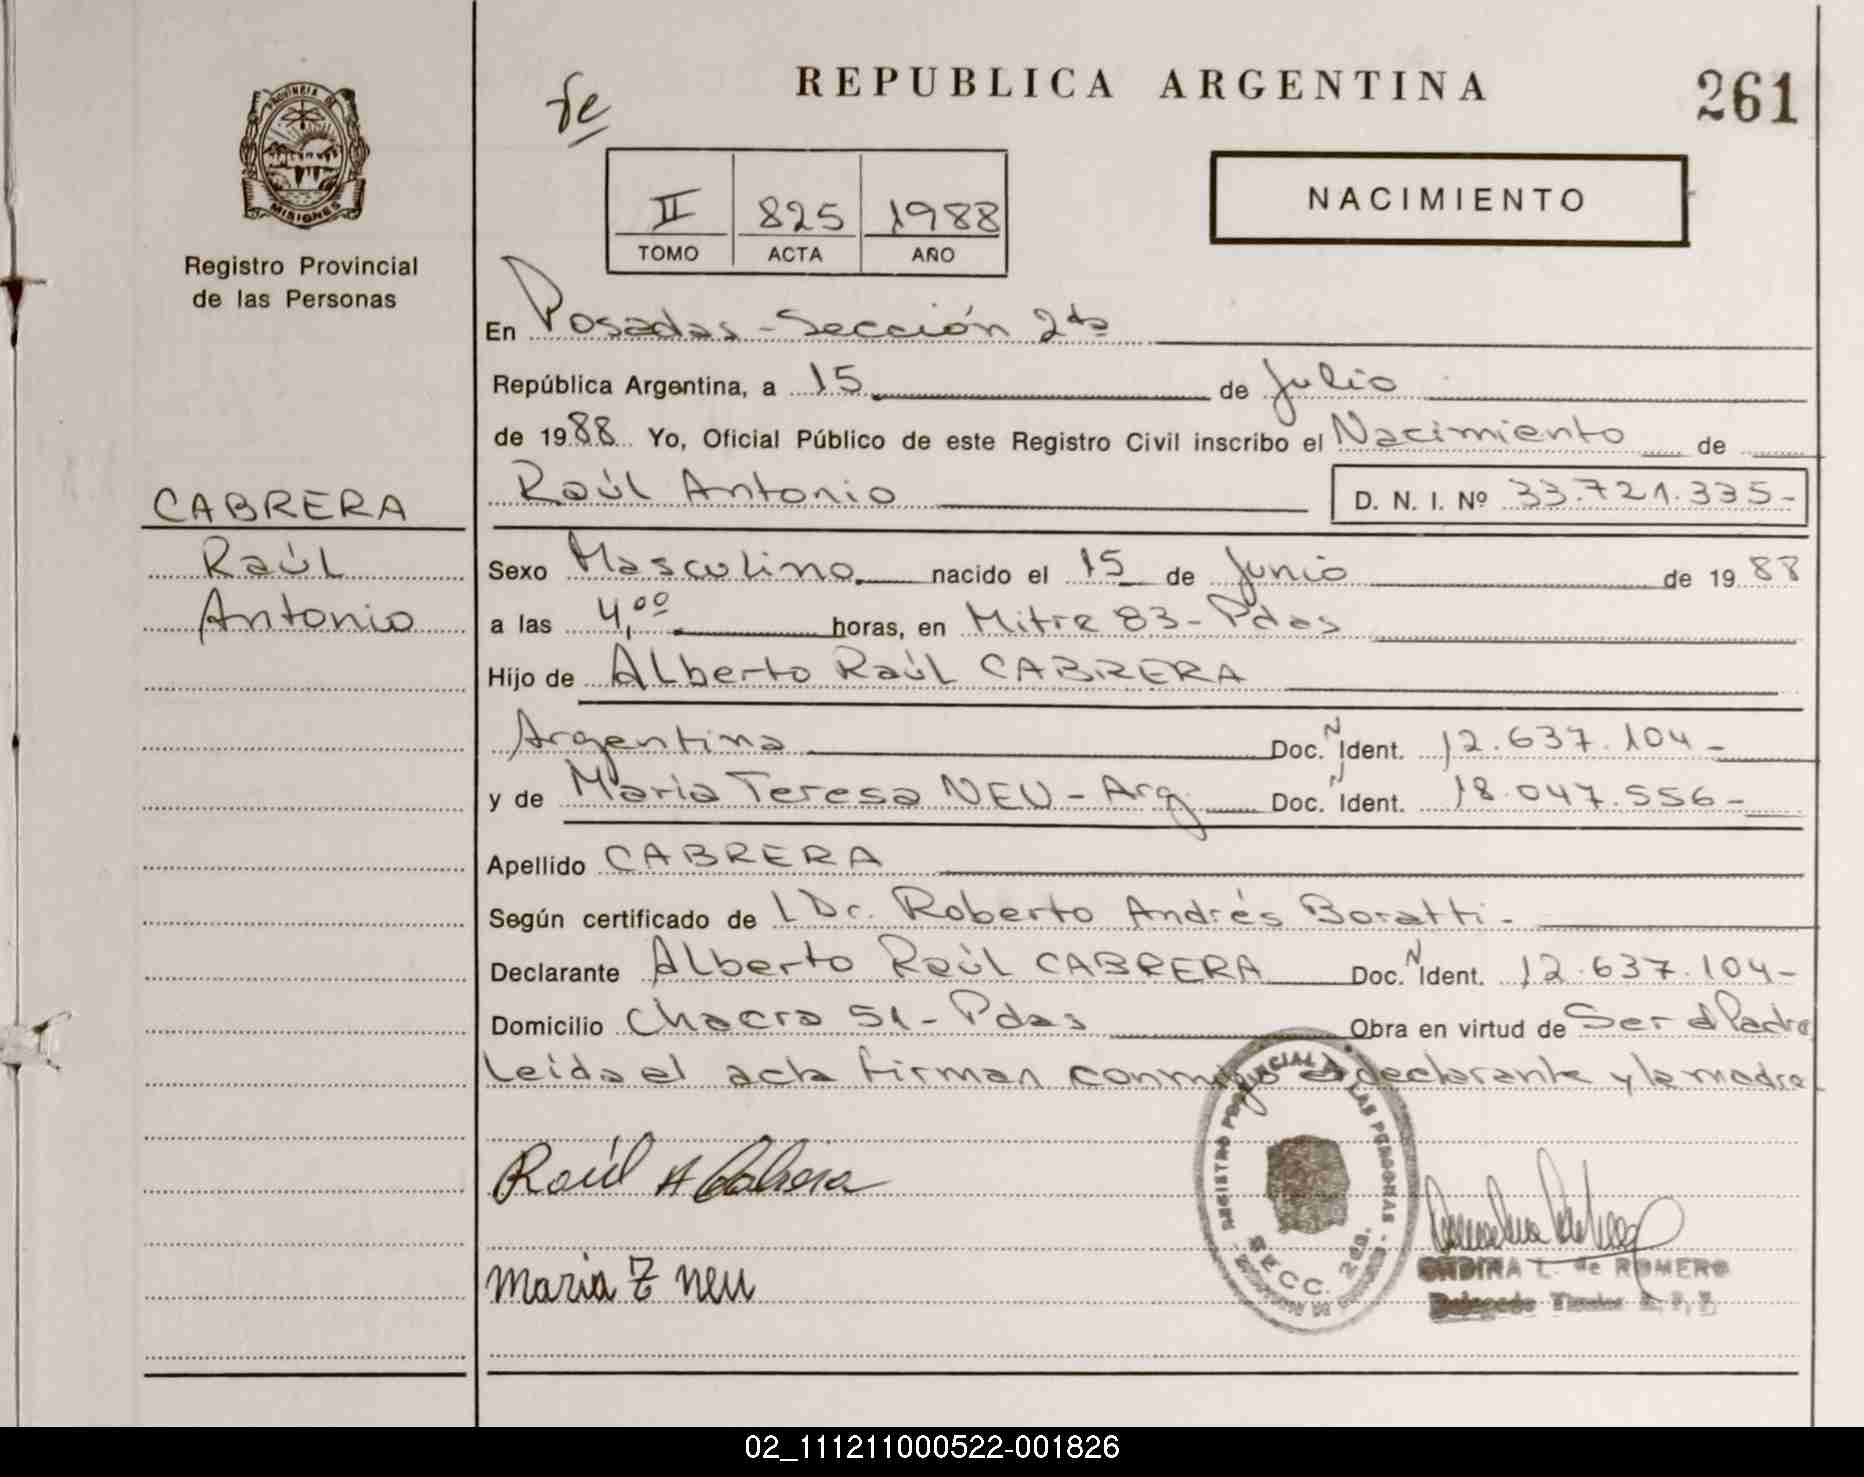 REPUBLICA ARGENTINA
261
PROVINCIA DE
MISIONES
Registro Provincial
de las Personas
II 825 1988
TOMO ACTA AÑO
NACIMIENTO
En Posadas - Sección 2da
República Argentina, a 15 de Julio
de 1988 Yo, Oficial Público de este Registro Civil inscribo el Nacimiento de
CABRERA
Raúl
Antonio
Raúl Antonio D. N. I. Nº 33.721.335-
Sexo Masculino nacido el 15 de Junio de 1988
a las 4,00 horas, en Mitre 83 - Pdas
Hijo de Alberto Raúl CABRERA
Argentina Doc. N Ident. 12.637.104-
y de Maria Teresa NEU - Arg. Doc. N Ident. 18.047.556-
Apellido CABRERA
Según certificado de Dr. Roberto Andrés Boratti -
Declarante Alberto Raúl CABRERA Doc. N Ident. 12.637.104-
Domicilio Chacra 51 - Pdas Obra en virtud de Ser el Padre
Leida el acta firman conmigo el declarante y la madre
Raúl A Cabrera
Maria T Neu
REGISTRO PROVINCIAL DE LAS PERSONAS
SECC. 2da.
ONDINA L. de ROMERO
Delegado Titular
02_111211000522-001826